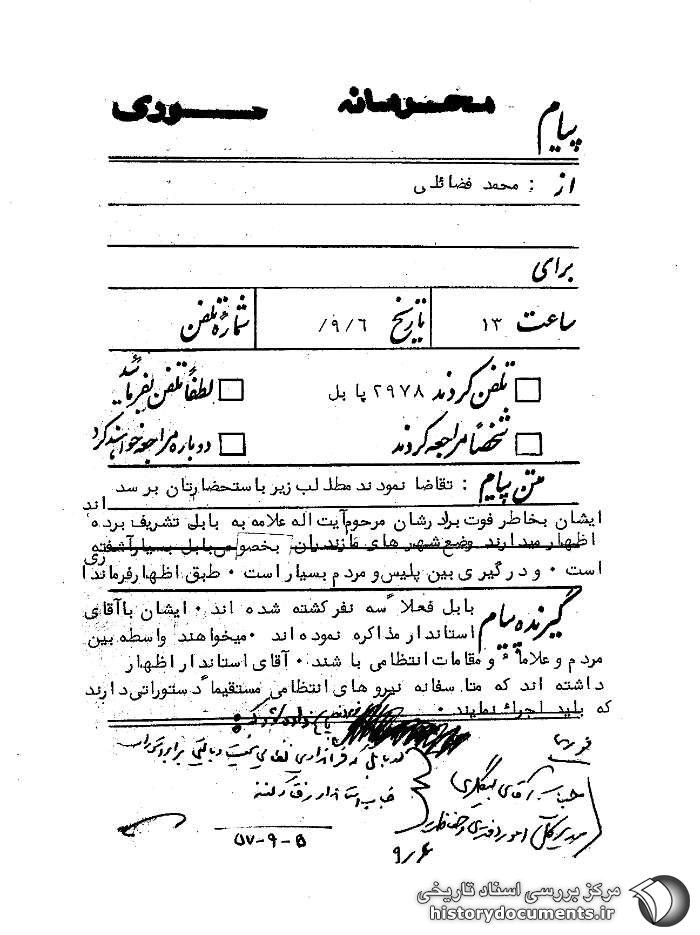 محرمانه فوری
پیام
از : محمد فضائلی
برای
ساعت ۱۳ تاریخ ۹/۶/ شماره تلفن
تلفن کردند ۲۹۷۸ پابل لطفاً تلفن بفرمائید
شخصاً مراجعه کردند دوباره مراجعه خواهند کرد
متن پیام : تقاضا نمودند مطالب زیر باستحضارتان برسد
ایشان بخاطر فوت برادرشان مرحوم آیت اله علامه به بابل تشریف برده اند
اظهار میدارند وضع شهرهای مازندران بخصوص بابل بسیار آشفته
است ۰ و درگیری بین پلیس و مردم بسیار است ۰ طبق اظهار فرماندا ری
بابل فعلا سه نفر کشته شده اند ۰ ایشان با آقای
گیرنده پیام
استاندار مذاکره نموده اند ۰ میخواهند واسطه بین
مردم و علماء و مقامات انتظامی باشند ۰ آقای استاندار اظهار
داشته اند که متاسفانه نیروهای انتظامی مستقیماً دستوراتی دارند
که باید اجراء نمایند ۰
پاسخ داده شود که
جناب آقای
مدیر کل امور دفتری
جناب استاندار
۵۷-۹-۵
۹/۶
مرکز بررسی اسناد تاریخی
historydocuments.ir